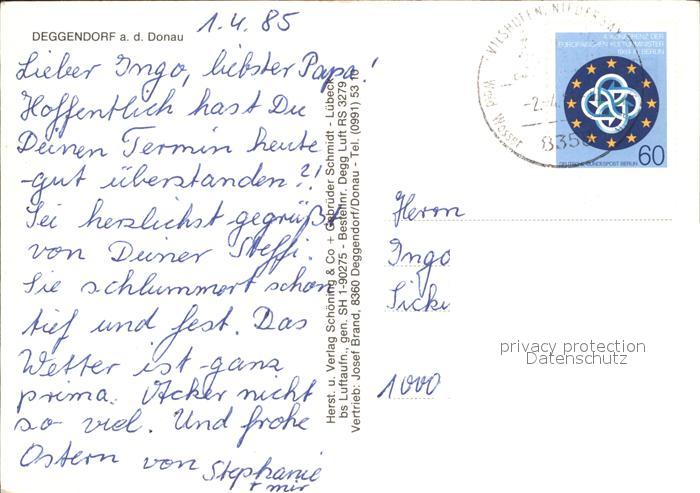 DEGGENDORF a. d. Donau
1.4.85
Lieber Ingo, liebster Papa!
Hoffentlich hast Du
Deinen Termin heute
gut überstanden?!
Sei herzlichst gegrüßt
von Deiner Steffi.
Sie schlummert schon
tief und fest. Das
Wetter ist ganz
prima. Acker nicht
so viel. Und frohe
Ostern von Stephanie
+ mir
Herst. u. Verlag Schöning & Co + Gebrüder Schmidt - Lübeck
bs Luftaufn., gen. SH 1-90275 - Bestellnr. Degg Luft RS 3279
Vertrieb: Josef Brand, 8360 Deggendorf/Donau - Tel. (0991) 53 10
VILSHOFEN, NIEDERBAY
Wald Wasser
835
4. KONFERENZ DER
EUROPÄISCHEN KULTURMINISTER
1984 IN BERLIN
DEUTSCHE BUNDESPOST BERLIN
60
Herrn
Ingo
privacy protection
Datenschutz
1000